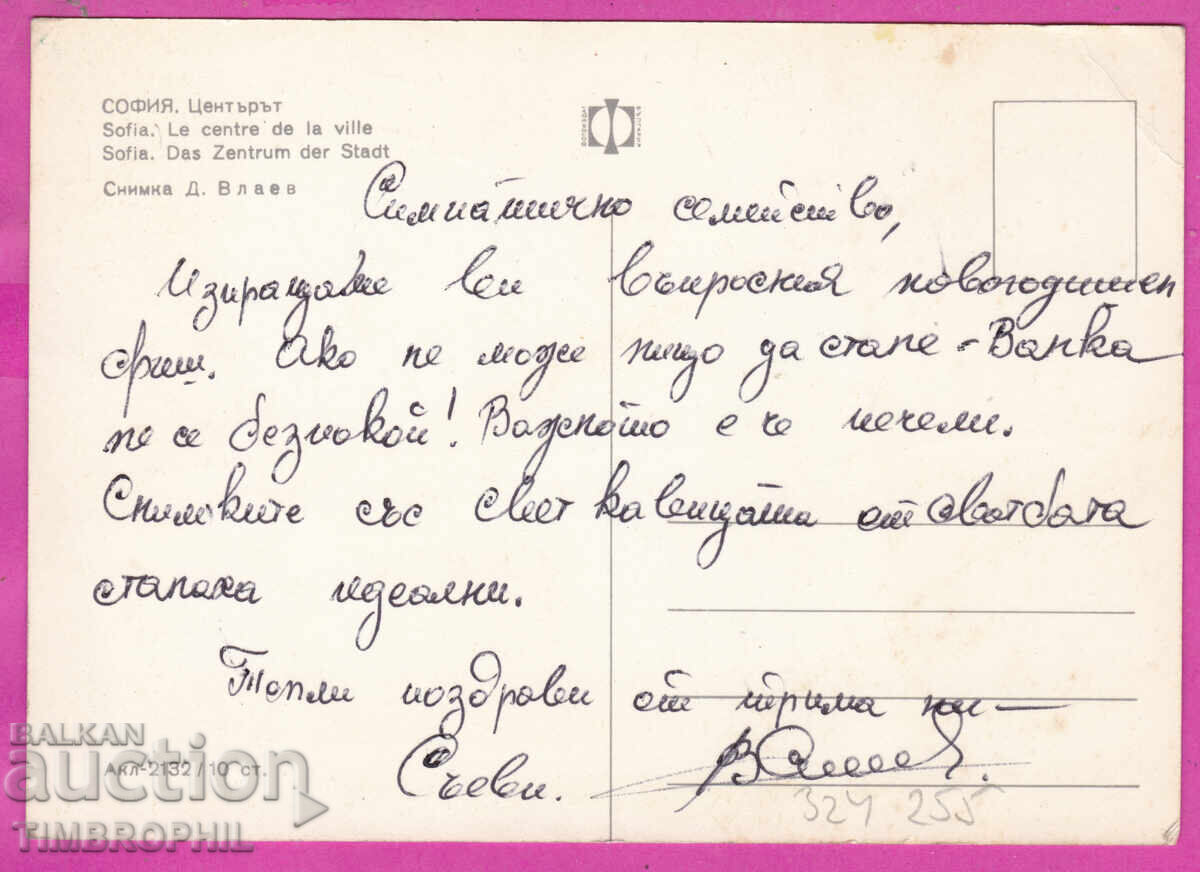 СОФИЯ. Центърът
Sofia. Le centre de la ville
Sofia. Das Zentrum der Stadt
Снимка Д. Влаев
ФОТОИЗДАТ
БЪЛГАРИЯ
Симпатично семейство,
Изпращаме ви въпросния новогодишен
фиш. Ако не може нищо да стане - Ванка
не се безпокой! Важното е че печели.
Снимките със светкавицата от сватбата
станаха идеални.
Топли поздрави от трима ни —
Съеви.
324 255
Акл-2132/10 ст.
BALKAN
auction
TIMBROPHIL